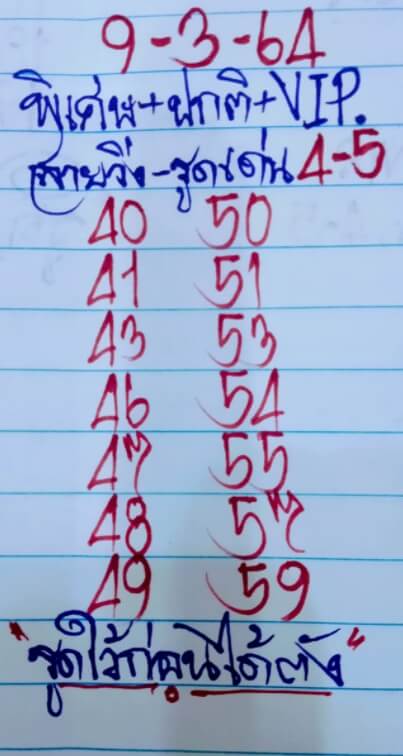 9-3-64
พิเศษ+ปกติ+VIP.
สายวิ่ง-รูดเด่น 4-5
40 50
41 51
43 53
46 54
47 55
48 57
49 59
"รูดไว้ก่อนได้ตัง"